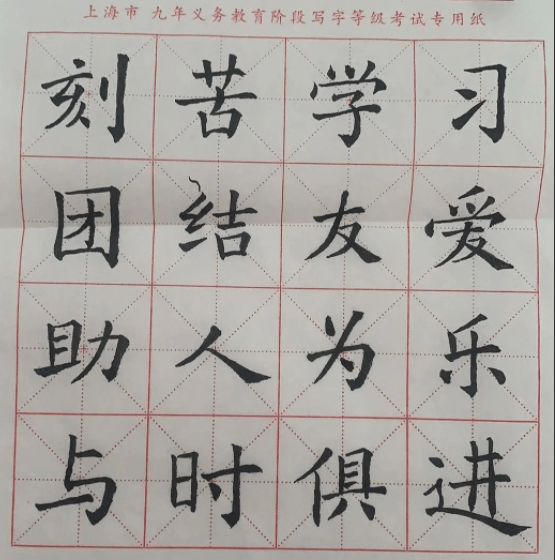 上海市 九年义务教育阶段写字等级考试专用纸
刻苦学习
团结友爱
助人为乐
与时俱进